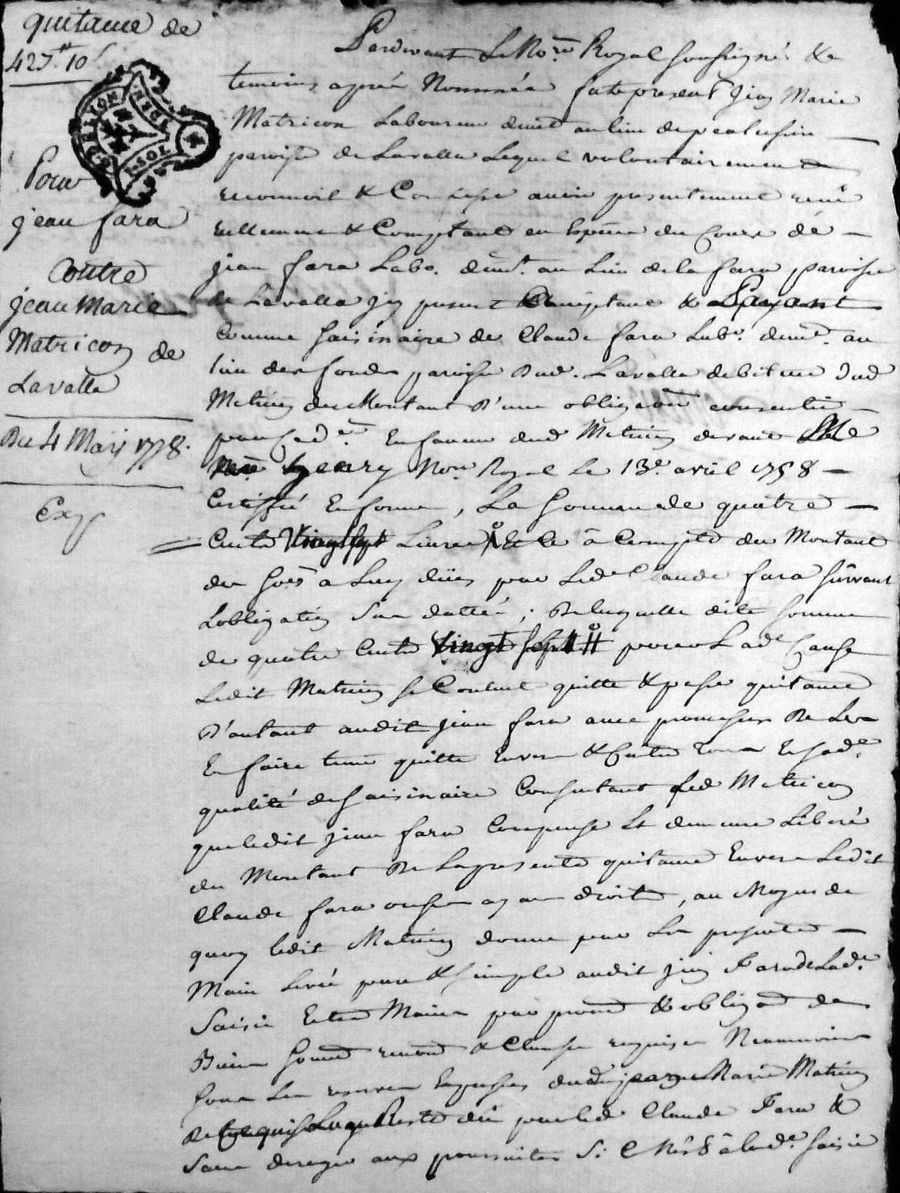 quitance de
427ᵗᵗ 10ˢ
Pour
jean fara
Contre
jean Marie
Matricon de
Lavalla
Du 4 May 1778.
Exp
Pardevant Le No.re Royal soussigné &
temoins après Nommés fut present jean Marie
Matricon Laboureur demt au lieu de
paroisse de Lavalla Lequel volontairement
reconnoit & Confesse avoir presentement reçu
reellement & Comptant en Especes du Cours de
jean fara Labo. demt. au Lieu de la fara paroisse
de Lavalla icy present acceptant & Payant
Comme saisinaire de Claude fara Lab.r demt. au
lieu des fonds paroisse dud. Lavalla debiteur dud
Matricon du Montant d'une obligaon consentie
par Led.r En faveur dud Matricon devant Me
henry Nore Royal Le 13.e avril 1758
Certiffié En forme, La Somme de quatre
Cents Vingt sept Livres & Ce à Compte du Montant
des Soes à Luy düés par Led. Claude fara suivant
Lobligation Sus dattée; De laquelle dite somme
de quatre Cents Vingt sept ᵗᵗ pour Lad.e Cause
Ledit Matricon se Contente quitte & passe quitance
D'autant audit jean fara avec promesse De Le
En faire tenir quitte Envers & Contre Tous En sad.e
qualité de saisinaire Consentant led Matricon
que ledit jean fara Compense Et demeure Libéré
du Montant De La presente quitance Envers Ledit
Claude fara ou ses ayans droits, au Moyen de
quoy ledit Matricon donne par Les presentes
Main Levée pure & simple audit jean Fara de Lad.e
Saisie Entre Mains par promes & obligaon de
Biens Soumis renond & Clauses requises Neanmoins
sous Les reserves Expresses dudit jean Marie Matricon
de ce qui Luy Reste dû par led Claude Fara &
Sans deroger aux poursuites Si à lad.e saisie